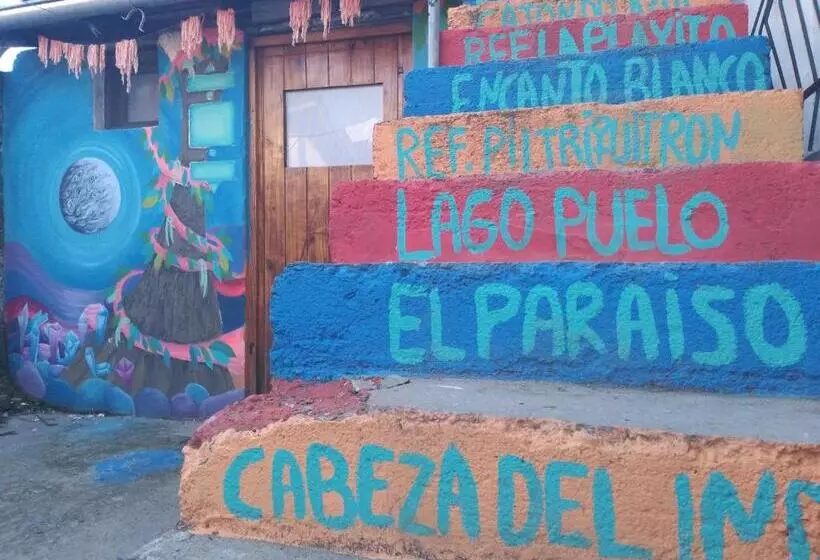 REF LA PLAYITO
ENCANTO BLANCO
REF. PIITRIQUITRON
LAGO PUELO
EL PARAISO
CABEZA DEL IN